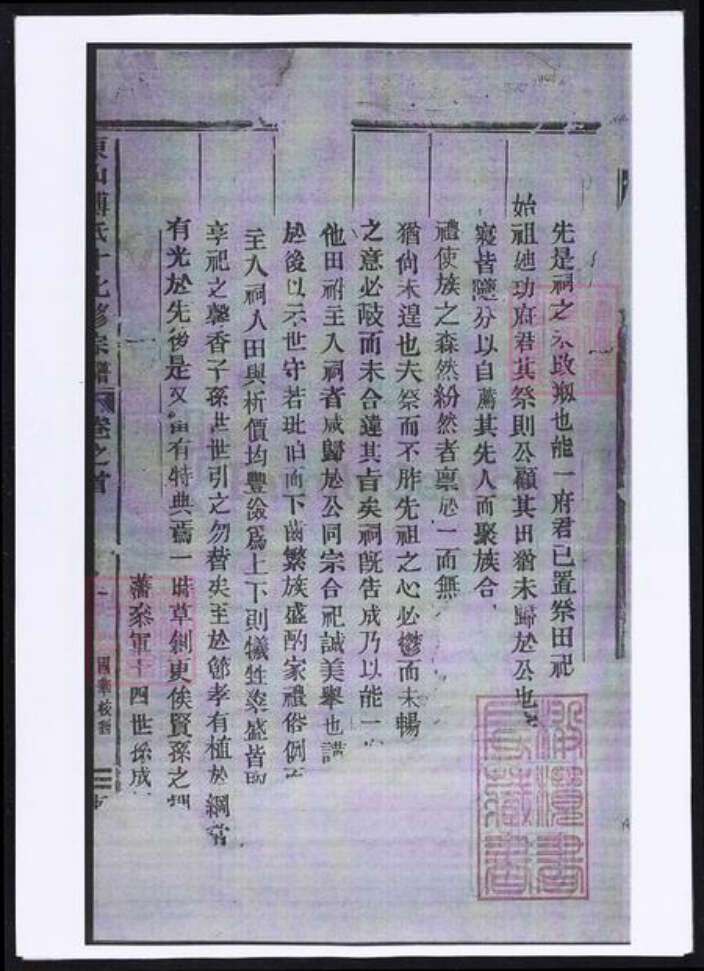 先是祠之未啟期也能一府君已置祭田祀
始祖地功府君其祭則公顧其田猶未歸於公也
寢皆隨分以自薦其先人而聚族合
禮使族之森然紛然者稟於一而無
猶尚未遑也夫祭而不胙先祖之心必鬱而未暢
之意必歧而未合違其旨矣祠既告成乃以能一
他田祔主入祠者咸歸於公同宗合祀誠美舉也
於後以示世守若玭伯而下齒繁族盛酌家禮俗例
主入祠人田與析價均豐儉為上下則犧牲粢盛皆
享祀之馨香子孫世世引之勿替矣至於節孝有植於綱常
有光於先後是又當有特典焉一時草創更俟賢孫之
藩參軍十四世孫成
氏十七修宗譜
卷之首
國華校